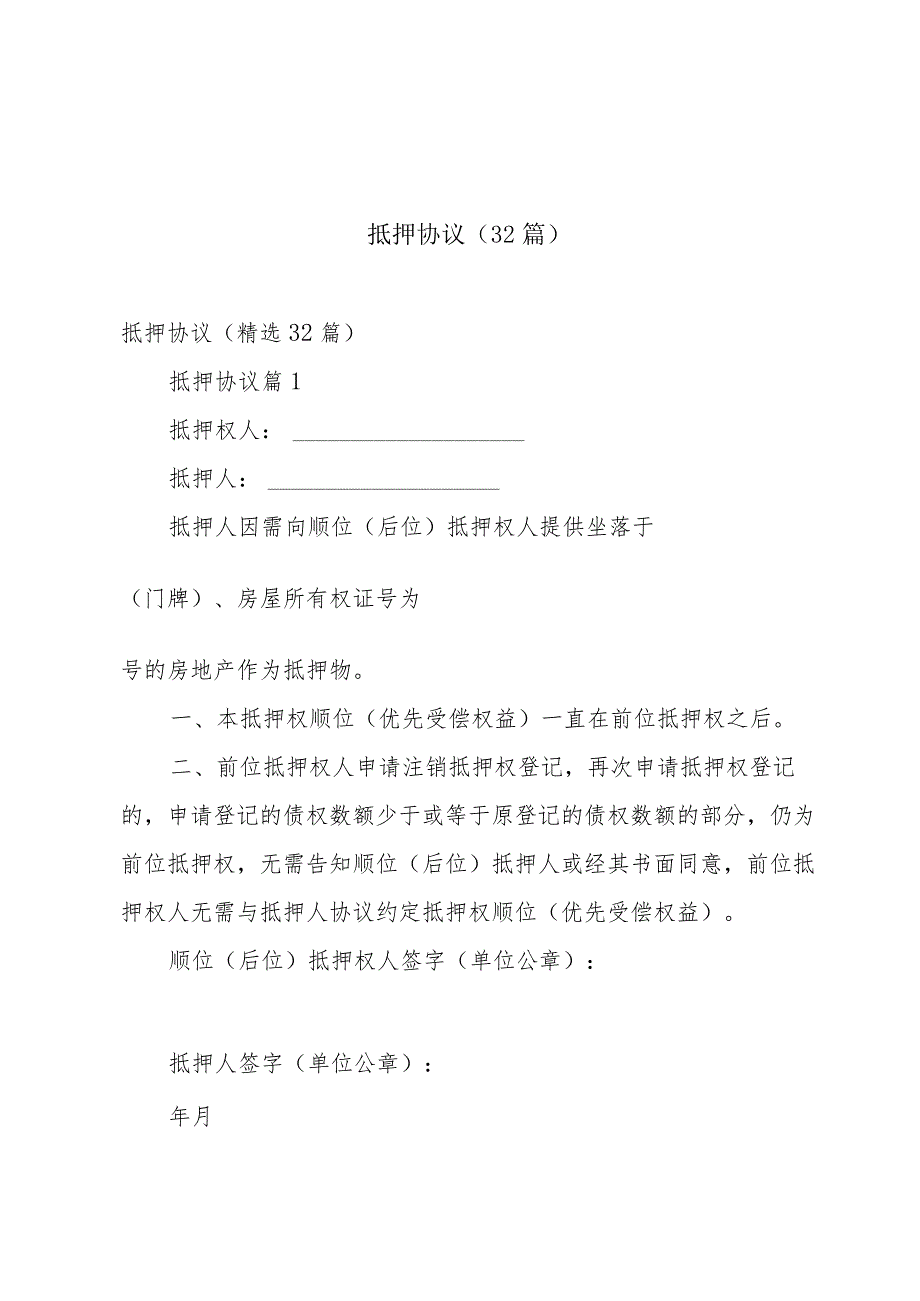 抵押协议（32 篇）
抵押协议（精选 32 篇）
抵押协议篇 1
抵押权人： ____________________
抵押人： ____________________
抵押人因需向顺位（后位）抵押权人提供坐落于
（门牌）、房屋所有权证号为
号的房地产作为抵押物。
一、本抵押权顺位（优先受偿权益）一直在前位抵押权之后。
二、前位抵押权人申请注销抵押权登记，再次申请抵押权登记
的，申请登记的债权数额少于或等于原登记的债权数额的部分，仍为
前位抵押权，无需告知顺位（后位）抵押人或经其书面同意，前位抵
押权人无需与抵押人协议约定抵押权顺位（优先受偿权益）。
顺位（后位）抵押权人签字（单位公章）：
抵押人签字（单位公章）：
年月